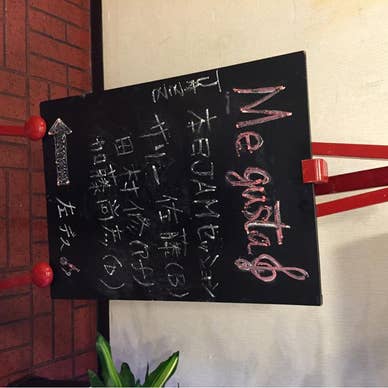 Me gusta♪
本日JAMセッション
ザリー佐藤(B)
田村 修(Pf)
加藤尚志(D)
左デス